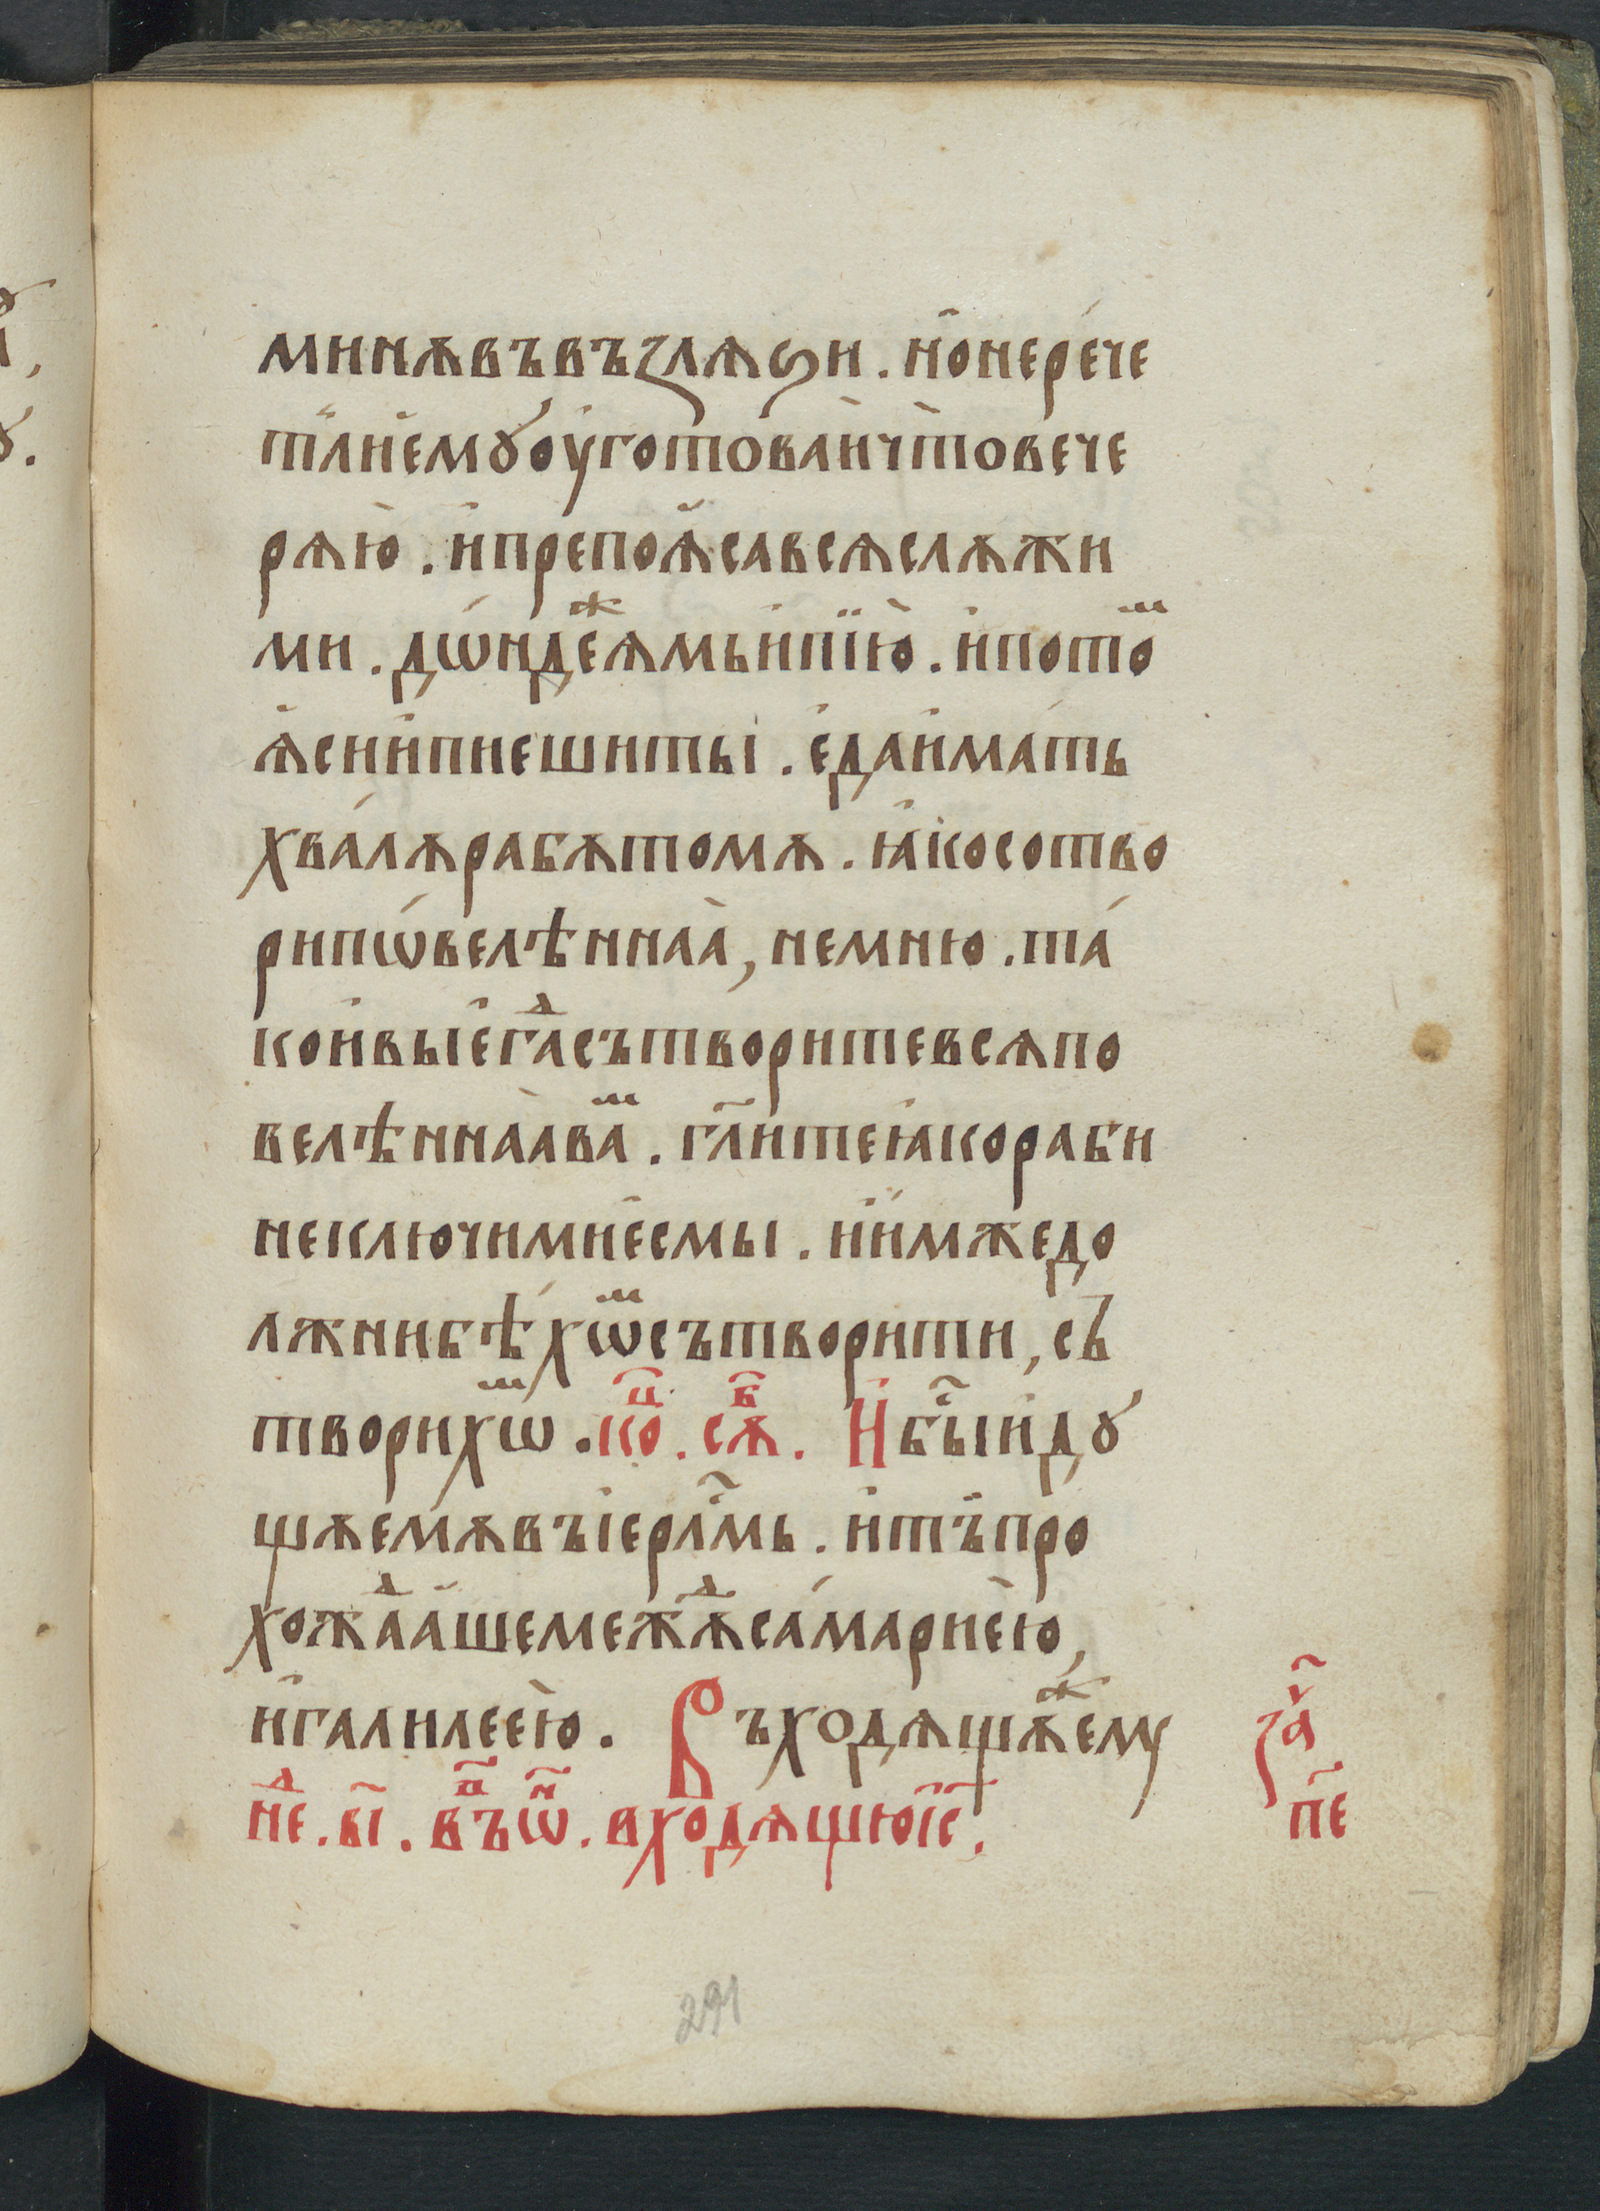 минѫвъвъꙁлѧѕи. но҆нерѐче
тъ҆лиемꙋоуготова҆ичтовече
рѧю̀. и҆препоꙗ҆савсѧслѫжи
ми. дѡ́ндеⷤꙗмьи҆пїю. и҆потоⷨ
ꙗ҆сии҆пиешиты. єдаи҆мать
хвалѫрабѫтомѫ. ꙗ҆косотво
рипѡ́велѣннаа̀, немню. та́
кои҆выє҆гаⷣсътворитевсѧпо
велѣннаа̀ваⷨ. гл҃итеꙗ҆кораби
неключимиє҆смы. ни҆имжедо
лжнибѣ́хѡⷨсътворити, съ
творихѡⷨ. коⷰ. сѫⷠ. И҆быⷭ҇и҆дꙋ
щѫемѫвъіер҇лⷭмь. и҆тъ҆про
хожаⷣа҆шемежѫⷣсамарие҆ю,
и҆галилеею̀. Въходѧщѫⷤему
неⷣ. в҃і. въⷫѡⷩ. входѧщюі҃с.
заⷱ҇
п҃е
291